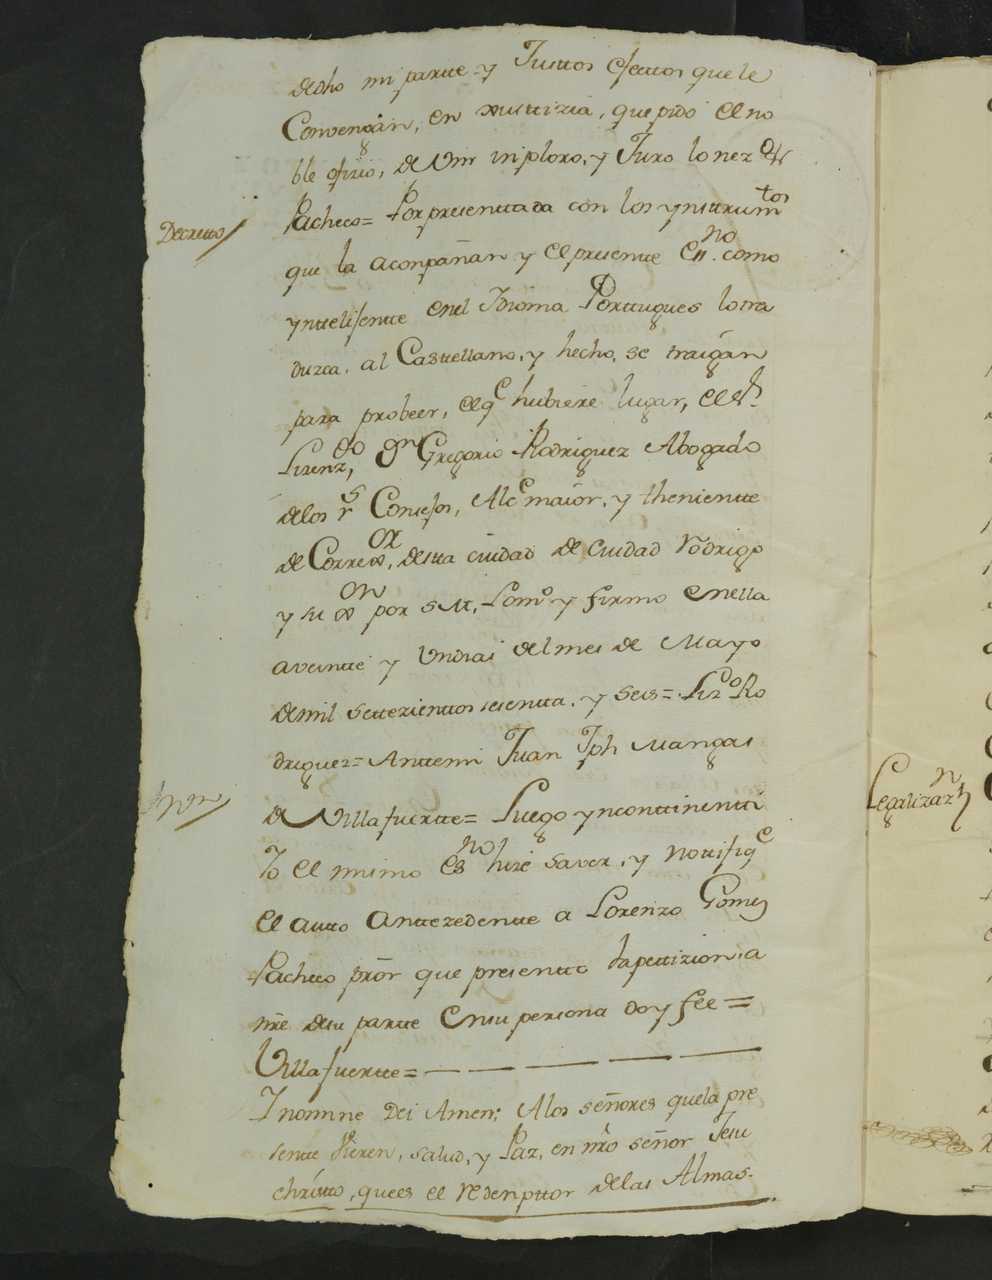 dedho mi partte y Justtos efecttos que le
Convengan, en xusttizia, que pido el no
ble ofizio, de Vm inploro, y Juro lo nez.
Pacheco= Por presenttada con los ynsttrumtos
Decretto
que la aconpañan y el presentte Esno. como
yntteligentte en el Idioma Porttugues lo tra
duzca, al Casttellano, y hecho, se traigan
para probeer, el qe hubiere lugar, el sr.
Lizenzdo, Dn Gregorio Rodriguez Abogado
de los Rs Consejos, Alce maior, y thenientte
de Correor, destta ciudad de Ciudad Rodrigo
y su on por S M, lo mdo y firmo en ella
a veintte y Un dias del mes de Mayo
de mil settezienttos sesentta, y seis= Lizdo Ro
driguez= Anttemi Juan Jph Mangas
de Villafuertte= Luego yncontinentti
Yo el mismo Esno hize saver, y nottifiqe
el autto Anttezedentte a Lorenzo Gomez
Pacheco pror que presentto la pettizion, a
nre de su partte en su persona doy fee=
Villafuertte=
In nomine Dei Amen; A los señores que la pre
sentte vieren, salud, y Paz, en nro señor Jesu
christto, que es el redenpttor de las Almas.
Legalizazn